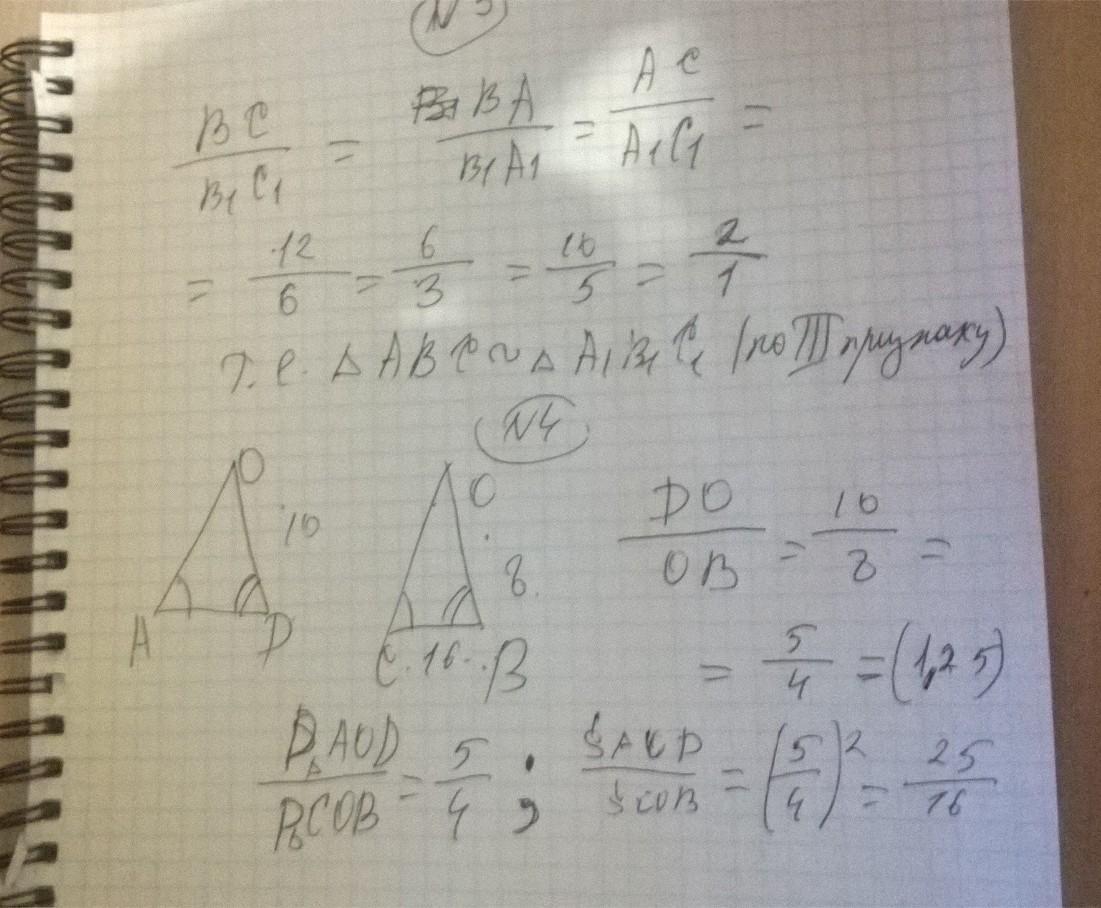 N3
BC/B₁C₁ = BA/B₁A₁ = AC/A₁C₁ =
= 12/6 = 6/3 = 10/5 = 2/1
т.е. △ ABC ~ △ A₁B₁C₁ (по III признаку)
N4
O 10 A D
O 8 C 16 B
DO/OB = 10/8 =
= 5/4 = (1,25)
P△AOD/P△COB = 5/4 ; SAOD/SCOB = (5/4)² = 25/16